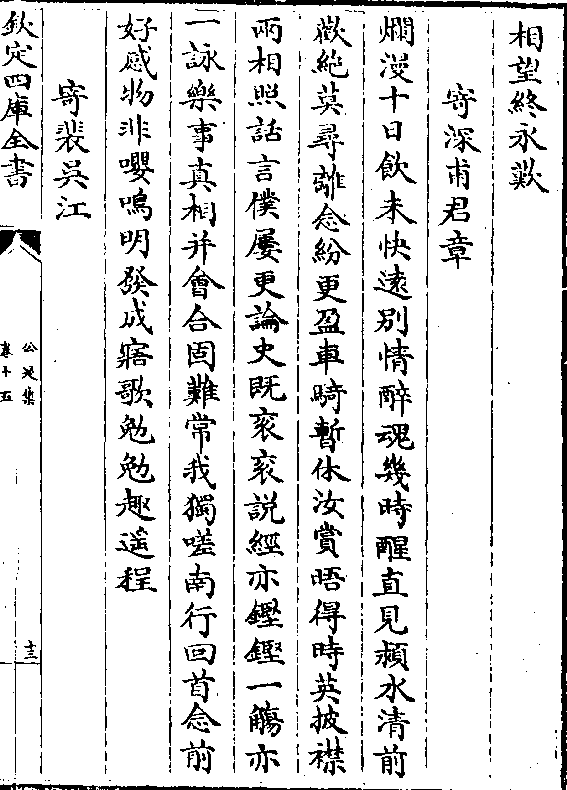 相望終永歎
寄深甫君章
爛漫十日飲未快遠別情醉魂幾時醒直見潁水清前
歡絶莫尋離念紛更盈車騎暫休汝賞晤得時英披襟
兩相照話言僕屢更論史既衮衮説經亦鏗鏗一觴亦
一詠樂事真相并會合固難常我獨嗟南行回首念前
好感物非嚶鳴明發成寤歌勉勉趣遥程
寄裴吳江
欽定四庫全書
公是集
卷十五
十三